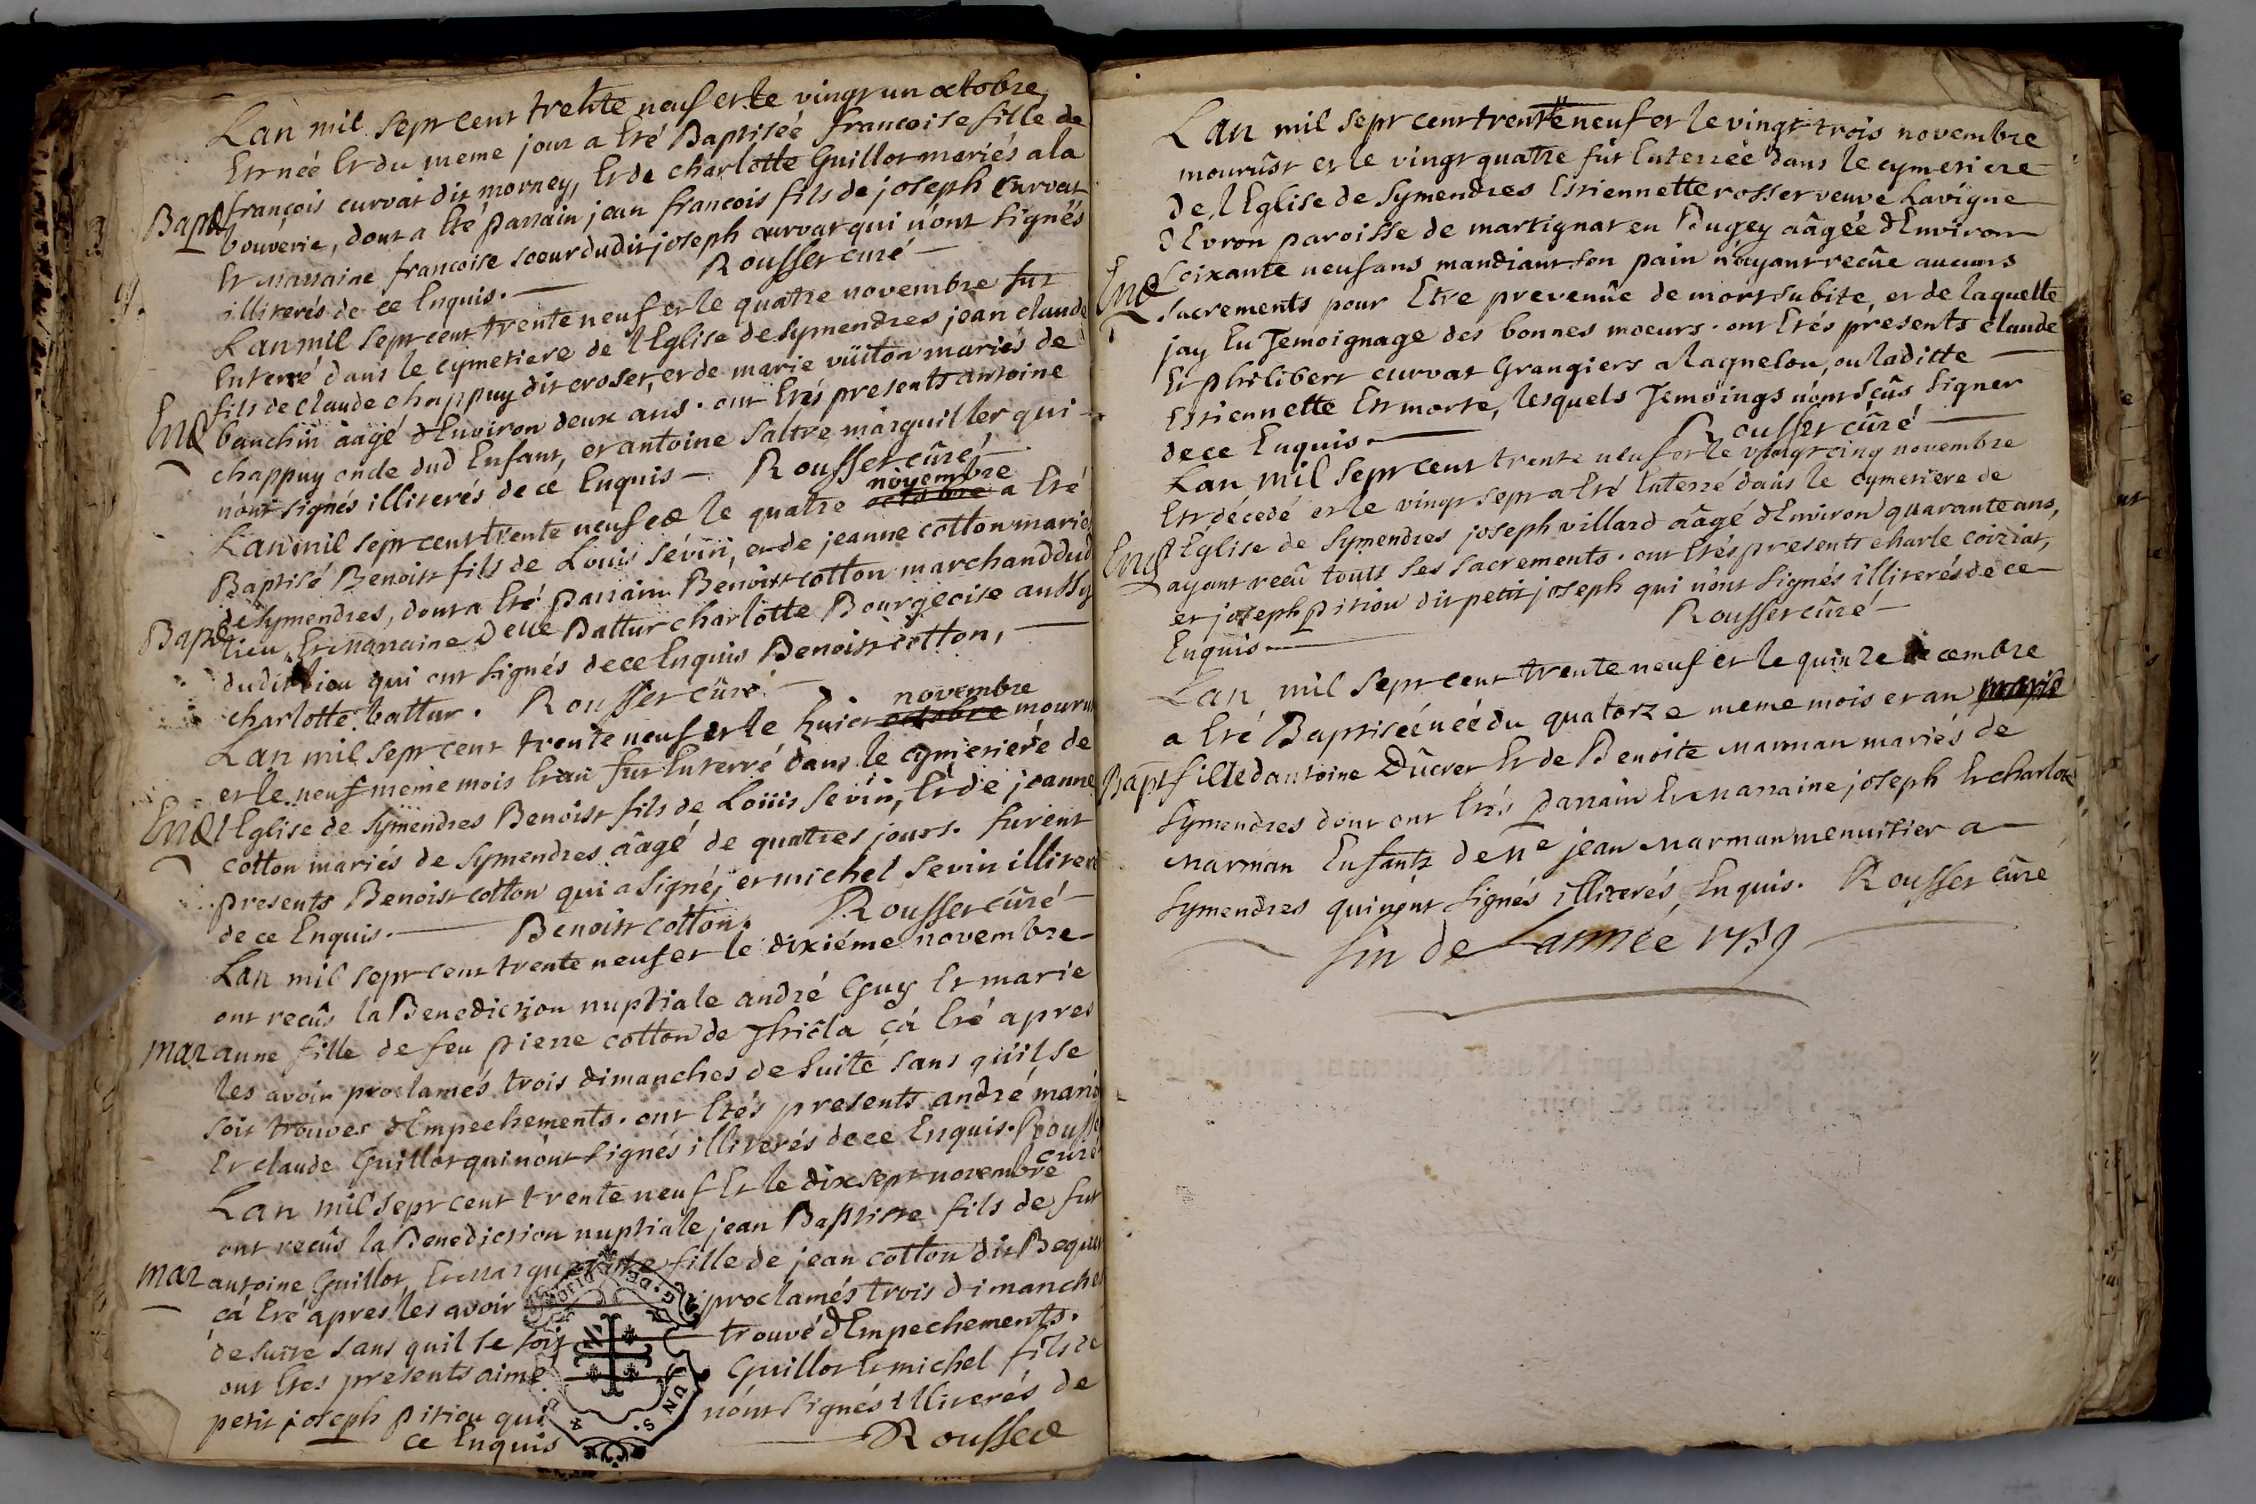 Lan mil sept cent trente neuf et le vingt un octobre
Est néé Et du meme jour a Eté Baptiséé francoise fille de
françois curvat dit morney, Et de charlotte Guillot mariés a la
Bapt bouverie, dont a Eté parrain jean francois fils de joseph curvat
Et marraine francoise soeur dudit joseph curvat qui n'ont signés
illiterés de ce Enquis. Rousset curé
Lan mil sept cent trente neuf et le quatre novembre fut
Enterré dans le cymetiere de l'Eglise de Symendres jean claude
fils de claude chappuy dit croset, et de marie vüiton mariés de
Ent banchin âagé d'Environ deux ans. ont Etés presents antoine
chappuy oncle dud Enfant, et antoine saltre marguiller qui
n'ont signés illiterés de ce Enquis Rousset cûré
novembre
Lan mil sept cent trente neuf et le quatre octobre a Eté
Baptisé Benoist fils de Louis sévin, et de jeanne cotton mariés
de Symendres, dont a Eté parrain Benoist cotton marchand dud
Bapt lieu, Et marraine Delle Battur charlotte Bourgeoise aussy
dudit lieu qui ont signés de ce Enquis Benoist cotton,
charlotte battur. Rousset cûré
novembre
Lan mil sept cent trente neuf et le huict octobre mourut
et le neuf meme mois Et an fut Enterré dans le cymetiere de
Ent l'Eglise de Symendres Benoist fils de Loüis sevin, Et de jeanne
cotton mariés de Symendres âagé de quatres jours. furent
presents Benoist cotton qui a signé, et michel sevin illiteré
de ce Enquis. Benoist cotton. Rousset cûré
Lan mil sept cent trente neuf et le dixiéme novembre
ont recûs la Benediction nuptiale andré Guy Et marie
mar anne fille de feu pierre cotton de çá Eté apres
les avoir proclamés trois dimanches de suite sans qu'il se
soit trouves d'Empechements. ont Etés presents andré
Et claude Guillot qui n'ont signés illiterés de ce Enquis. Rousset
curé
Lan mil sept cent trente neuf Et le dix sept novembre
ont recûs la Benediction nuptiale jean Baptiste fils de fut
mar antoine Guillot, Et marguerite fille de jean cotton dit
çá Eté apres les avoir proclamés trois dimanches
de suite sans quil se soit trouvé d'Empechements.
ont Etes presents aimé Guillot Et michel fils de
petit joseph pitiou qui n'ont signés illiterés de
ce Enquis Rousset
Lan mil sept cent trente neuf et le vingt trois novembre
mourûst et le vingt quatre fût Enterréé dans le cymetiere
de l'Eglise de Symendres Estiennette rosset veuve Lavigne
d'Evron paroisse de martignat en Bugey âagéé d'Environ
Ent soixante neuf ans mandiant son pain n'ayant recûe aucuns
sacrements pour Etre prevenûe de mort subite, et de laquelle
jay Eu Temoignage des bonnes moeurs. ont Etés présents claude
Et philibert curvat Grangiers a lagnelou, ou laditte
Estiennette Est morte, lesquels Temoings n'ont sçûs signer
de ce Enquis Rousset cûré
Lan mil sept cent trente neuf et le vingt cinq novembre
Est décedé et le vingt sept a Eté Enterré dans le cymetiere de
Ent l'Eglise de Symendres joseph villard âagé d'Environ quarante ans,
ayant recû touts ses sacrements. ont Etés presents charle coiziat,
et joseph pitiou dit petit joseph qui n'ont signés illiterés de ce
Enquis Rousset cûré
Lan mil sept cent trente neuf et le quinze decembre
a Eté Baptiséé néé du quatorze meme mois et an marie
Bapt fille d'antoine Dûcret Et de Benoite marman mariés de
Symendres dont ont Etés parrain Et marraine joseph Et charlotte
marman Enfants de me jean marman menuisier a
Symendres qui n'ont signés illiterés, Enquis. Rousset cûré
fin de Lannéé 1739